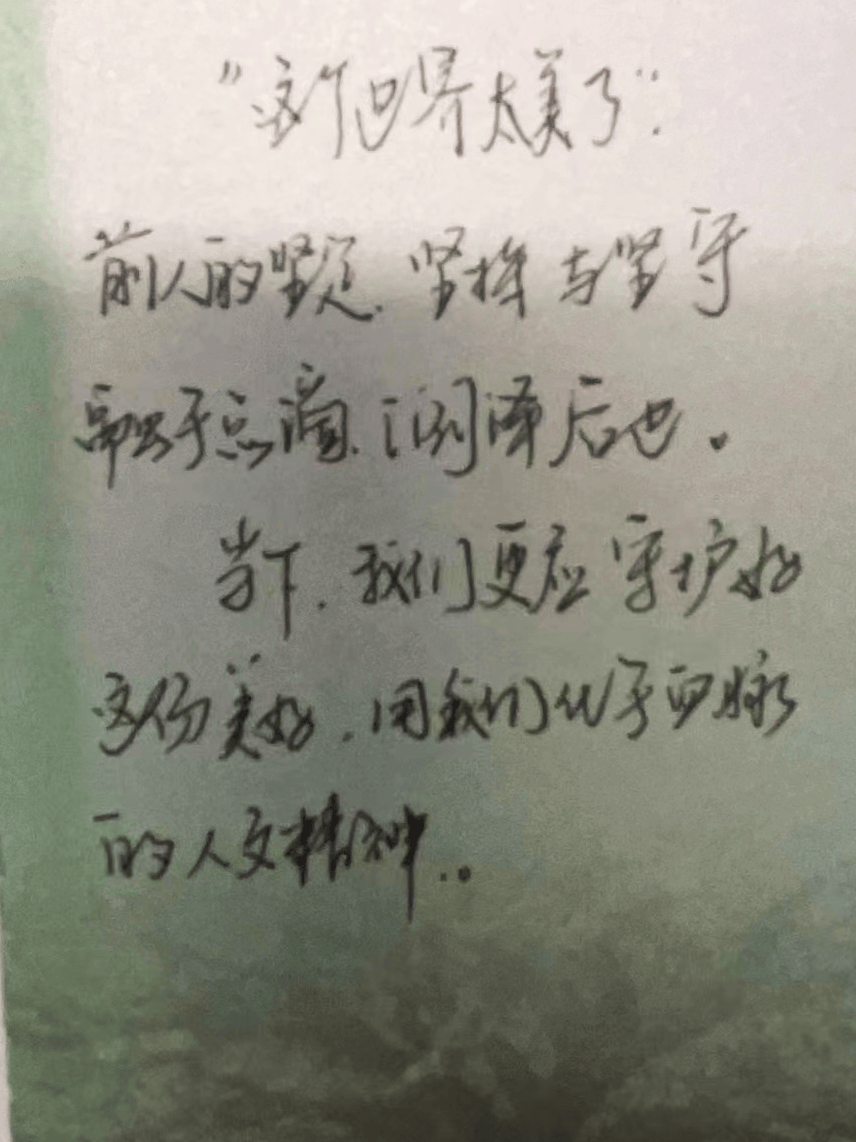 “这个世界太美了”.
前人的坚定、坚持与坚守
融于点滴、润泽后世。
当下,我们更应守护好
这份美好,用我们化于血脉
的人文精神..。